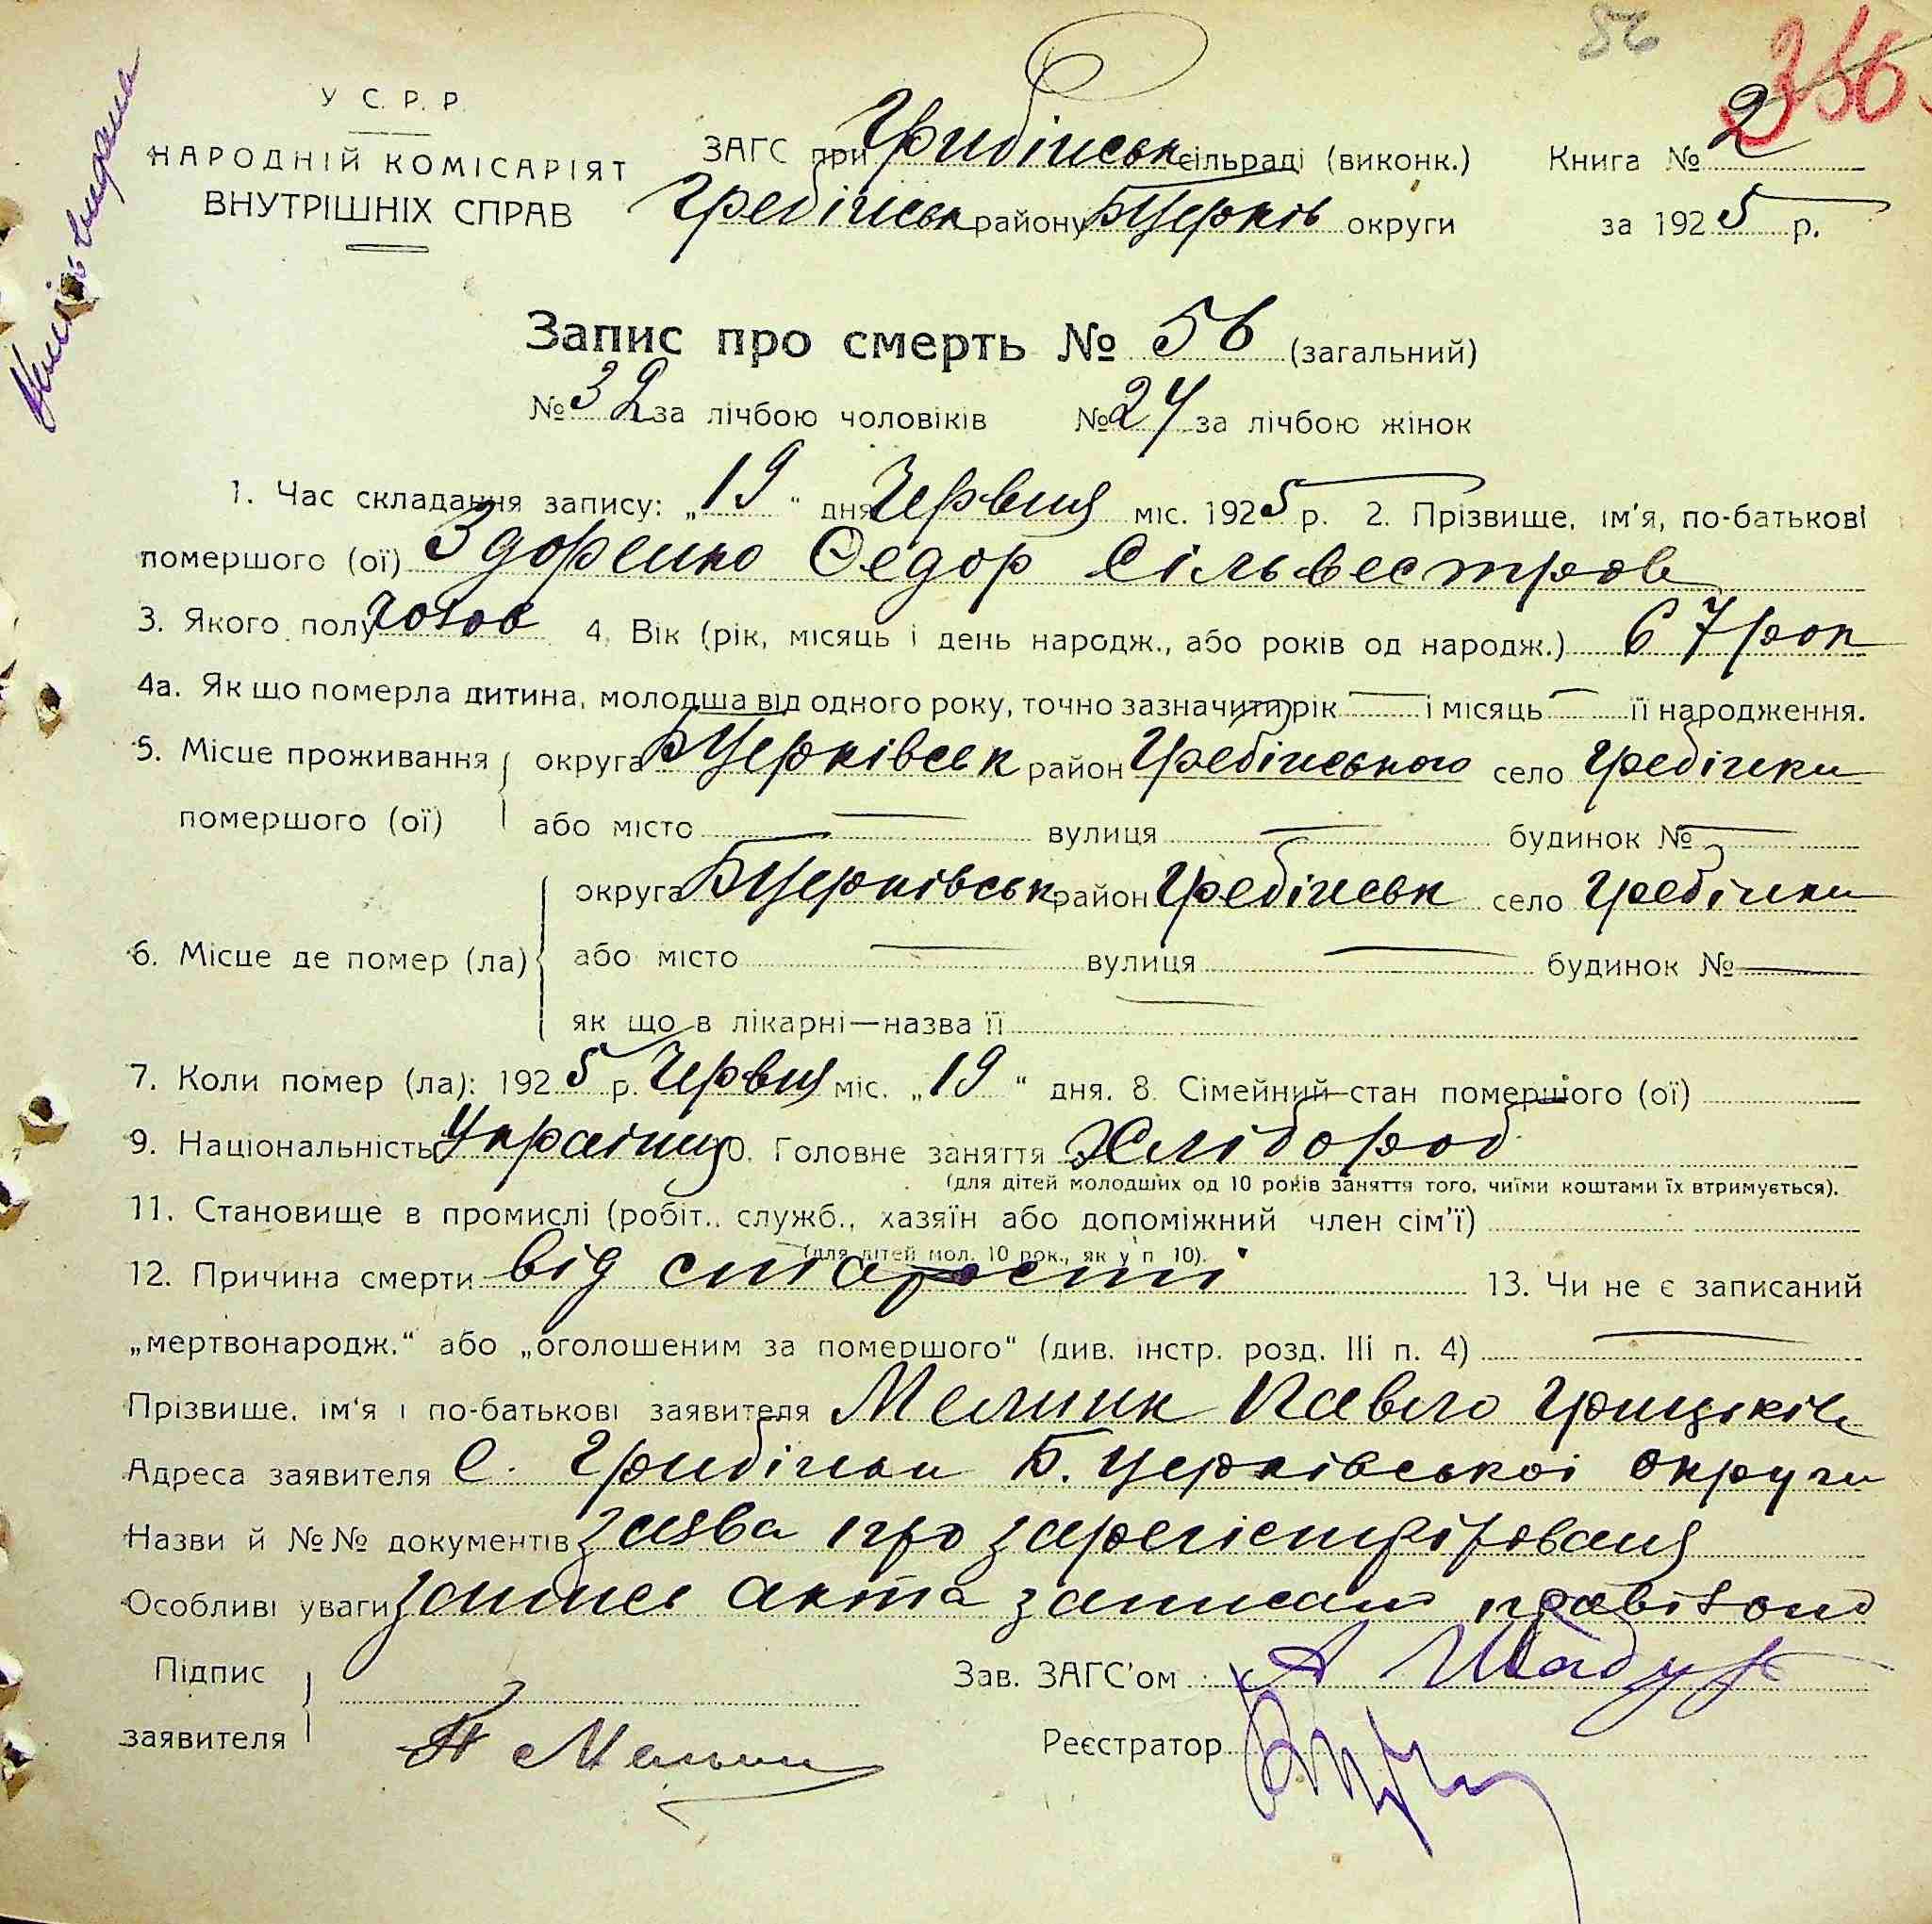 56
356
У С. Р. Р.
НАРОДНІЙ КОМІСАРІЯТ
ВНУТРІШНІХ СПРАВ
ЗАГС при Грибінськ сільраді (виконк.)
Гребінськ району БЦерків округи
Книга № 2
за 1925 р.
Запис про смерть № 56 (загальний)
№ 32 за лічбою чоловіків № 24 за лічбою жінок
1. Час складання запису: „19“ дня Червня міс. 1925 р. 2. Прізвище, ім'я, по-батькові
помершого (ої) Здоренко Федор Сільвестров
3. Якого полу чолов 4. Вік (рік, місяць і день народж., або років од народж.) 67 рок
4а. Як що померла дитина, молодша від одного року, точно зазначити рік — і місяць — її народження.
5. Місце проживання помершого (ої) округа БЦерківськ район Гребінського село Гребінки
або місто — вулиця — будинок № —
6. Місце де помер (ла) округа БЦерківськ район Гребінськ село Гребінки
або місто — вулиця — будинок № —
як що в лікарні—назва її —
7. Коли помер (ла): 1925 р. Червня міс. „19“ дня. 8. Сімейний стан помершого (ої)
9. Національність Українц 10. Головне заняття Хлібороб
(для дітей молодших од 10 років заняття того, чиїми коштами їх втримується).
11. Становище в промислі (робіт., служб., хазяїн або допоміжний член сім'ї)
(для дітей мол. 10 рок., як у п 10).
12. Причина смерти від старости 13. Чи не є записаний
„мертвонародж.“ або „оголошеним за помершого“ (див. інстр. розд. III п. 4) —
Прізвище, ім'я і по-батькові заявителя Мелник Павло Грицьків
Адреса заявителя С. Грибінки Б. Церківської округи
Назви й №№ документів заява про зарегістріровання
Особливі уваги запись акта записано правільно
Підпис заявителя П Мельник
Зав. ЗАГС'ом
Реєстратор